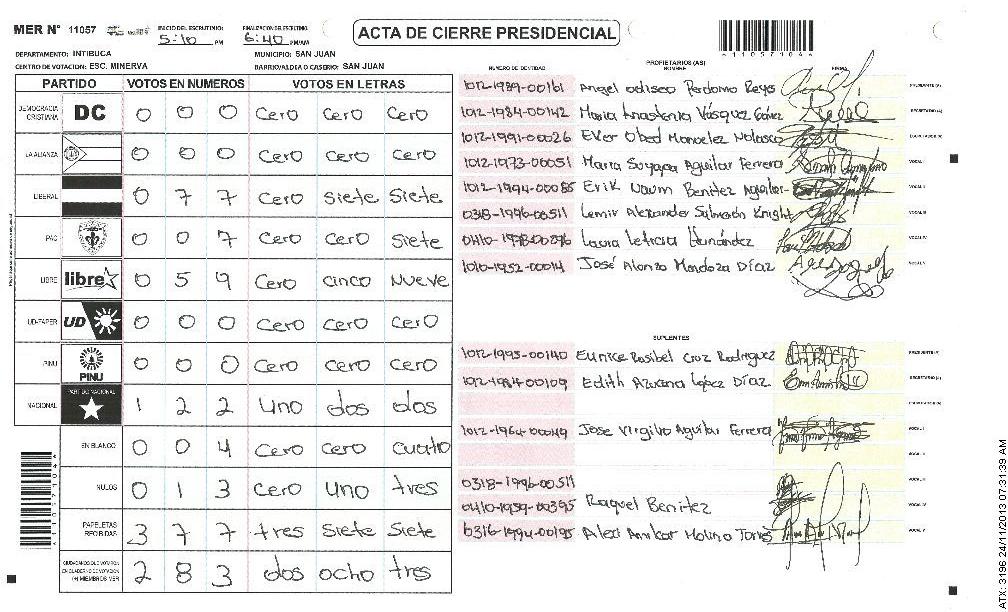 MER N° 11057 INICIO DEL ESCRUTINIO: 5:10 PM FINALIZACION DEL ESCRUTINIO: 6:40 PM/AM
ACTA DE CIERRE PRESIDENCIAL
DEPARTAMENTO: INTIBUCA MUNICIPIO: SAN JUAN
CENTRO DE VOTACION: ESC. MINERVA BARRIO/ALDEA O CASERIO: SAN JUAN
PARTIDO VOTOS EN NUMEROS VOTOS EN LETRAS
DEMOCRACIA CRISTIANA DC 0 0 0 Cero Cero Cero
LA ALIANZA 0 0 0 Cero Cero Cero
LIBERAL 0 7 7 Cero Siete Siete
PAC 0 0 7 Cero Cero Siete
LIBRE libre 0 5 9 Cero cinco Nueve
UD-FAPER UD 0 0 0 Cero Cero Cero
PINU PINU 0 0 0 Cero Cero Cero
NACIONAL PARTIDO NACIONAL 1 2 2 Uno dos dos
EN BLANCO 0 0 4 Cero Cero cuatro
NULOS 0 1 3 Cero Uno tres
PAPELETAS RECIBIDAS 3 7 7 tres Siete Siete
CIUDADANOS QUE VOTARON EN CUADERNO DE VOTACION (+) MIEMBROS MER 2 8 3 dos ocho tres
NUMERO DE IDENTIDAD PROPIETARIOS (AS) NOMBRE FIRMA
1012-1989-00161 Angel odiseo Perdomo Reyes PRESIDENTE (A)
1012-1984-00142 Maria Anastenia Vásquez Gómez SECRETARIO (A)
1012-1991-00026 Ever Obed Manuelez Nolasco ESCRUTADOR (A)
1012-1973-00051 Maria Suyapa Aguilar Ferrera VOCAL I
1012-1994-00085 Erik Naum Benitez Aguilar VOCAL II
0318-1996-00511 Lemir Alexander Salmerón Knight VOCAL III
Laura Leticia Hernández VOCAL IV
1010-1952-00014 José Alonzo Mendoza Díaz VOCAL V
SUPLENTES
1012-1995-00140 Eunice Rosibel Cruz Rodriguez PRESIDENTE (A)
1012-1984-00109 Edith Azucena López Díaz SECRETARIO (A)
ESCRUTADOR (A)
1012-1964-00049 Jose Virgilio Aguilar Ferrera VOCAL I
VOCAL II
0318-1996-00511 VOCAL III
0410-1959-00395 Raquel Benitez VOCAL IV
0316-1994-00195 Alexi Amilcar Molina Torres VOCAL V
ATX: 3196 24/11/2013 07:31:39 AM